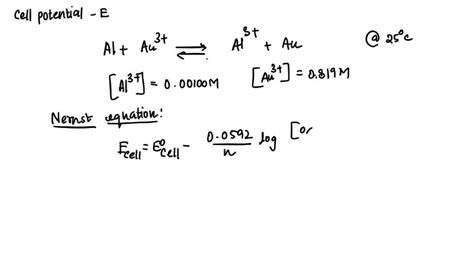 Cell potential - E
Al + Au³⁺ ⇌ Al³⁺ + Au @ 25°c
[Al³⁺] = 0.00100M [Au³⁺] = 0.819M
Nernst equation:
E_cell = E⁰_cell - 0.0592/n log [or